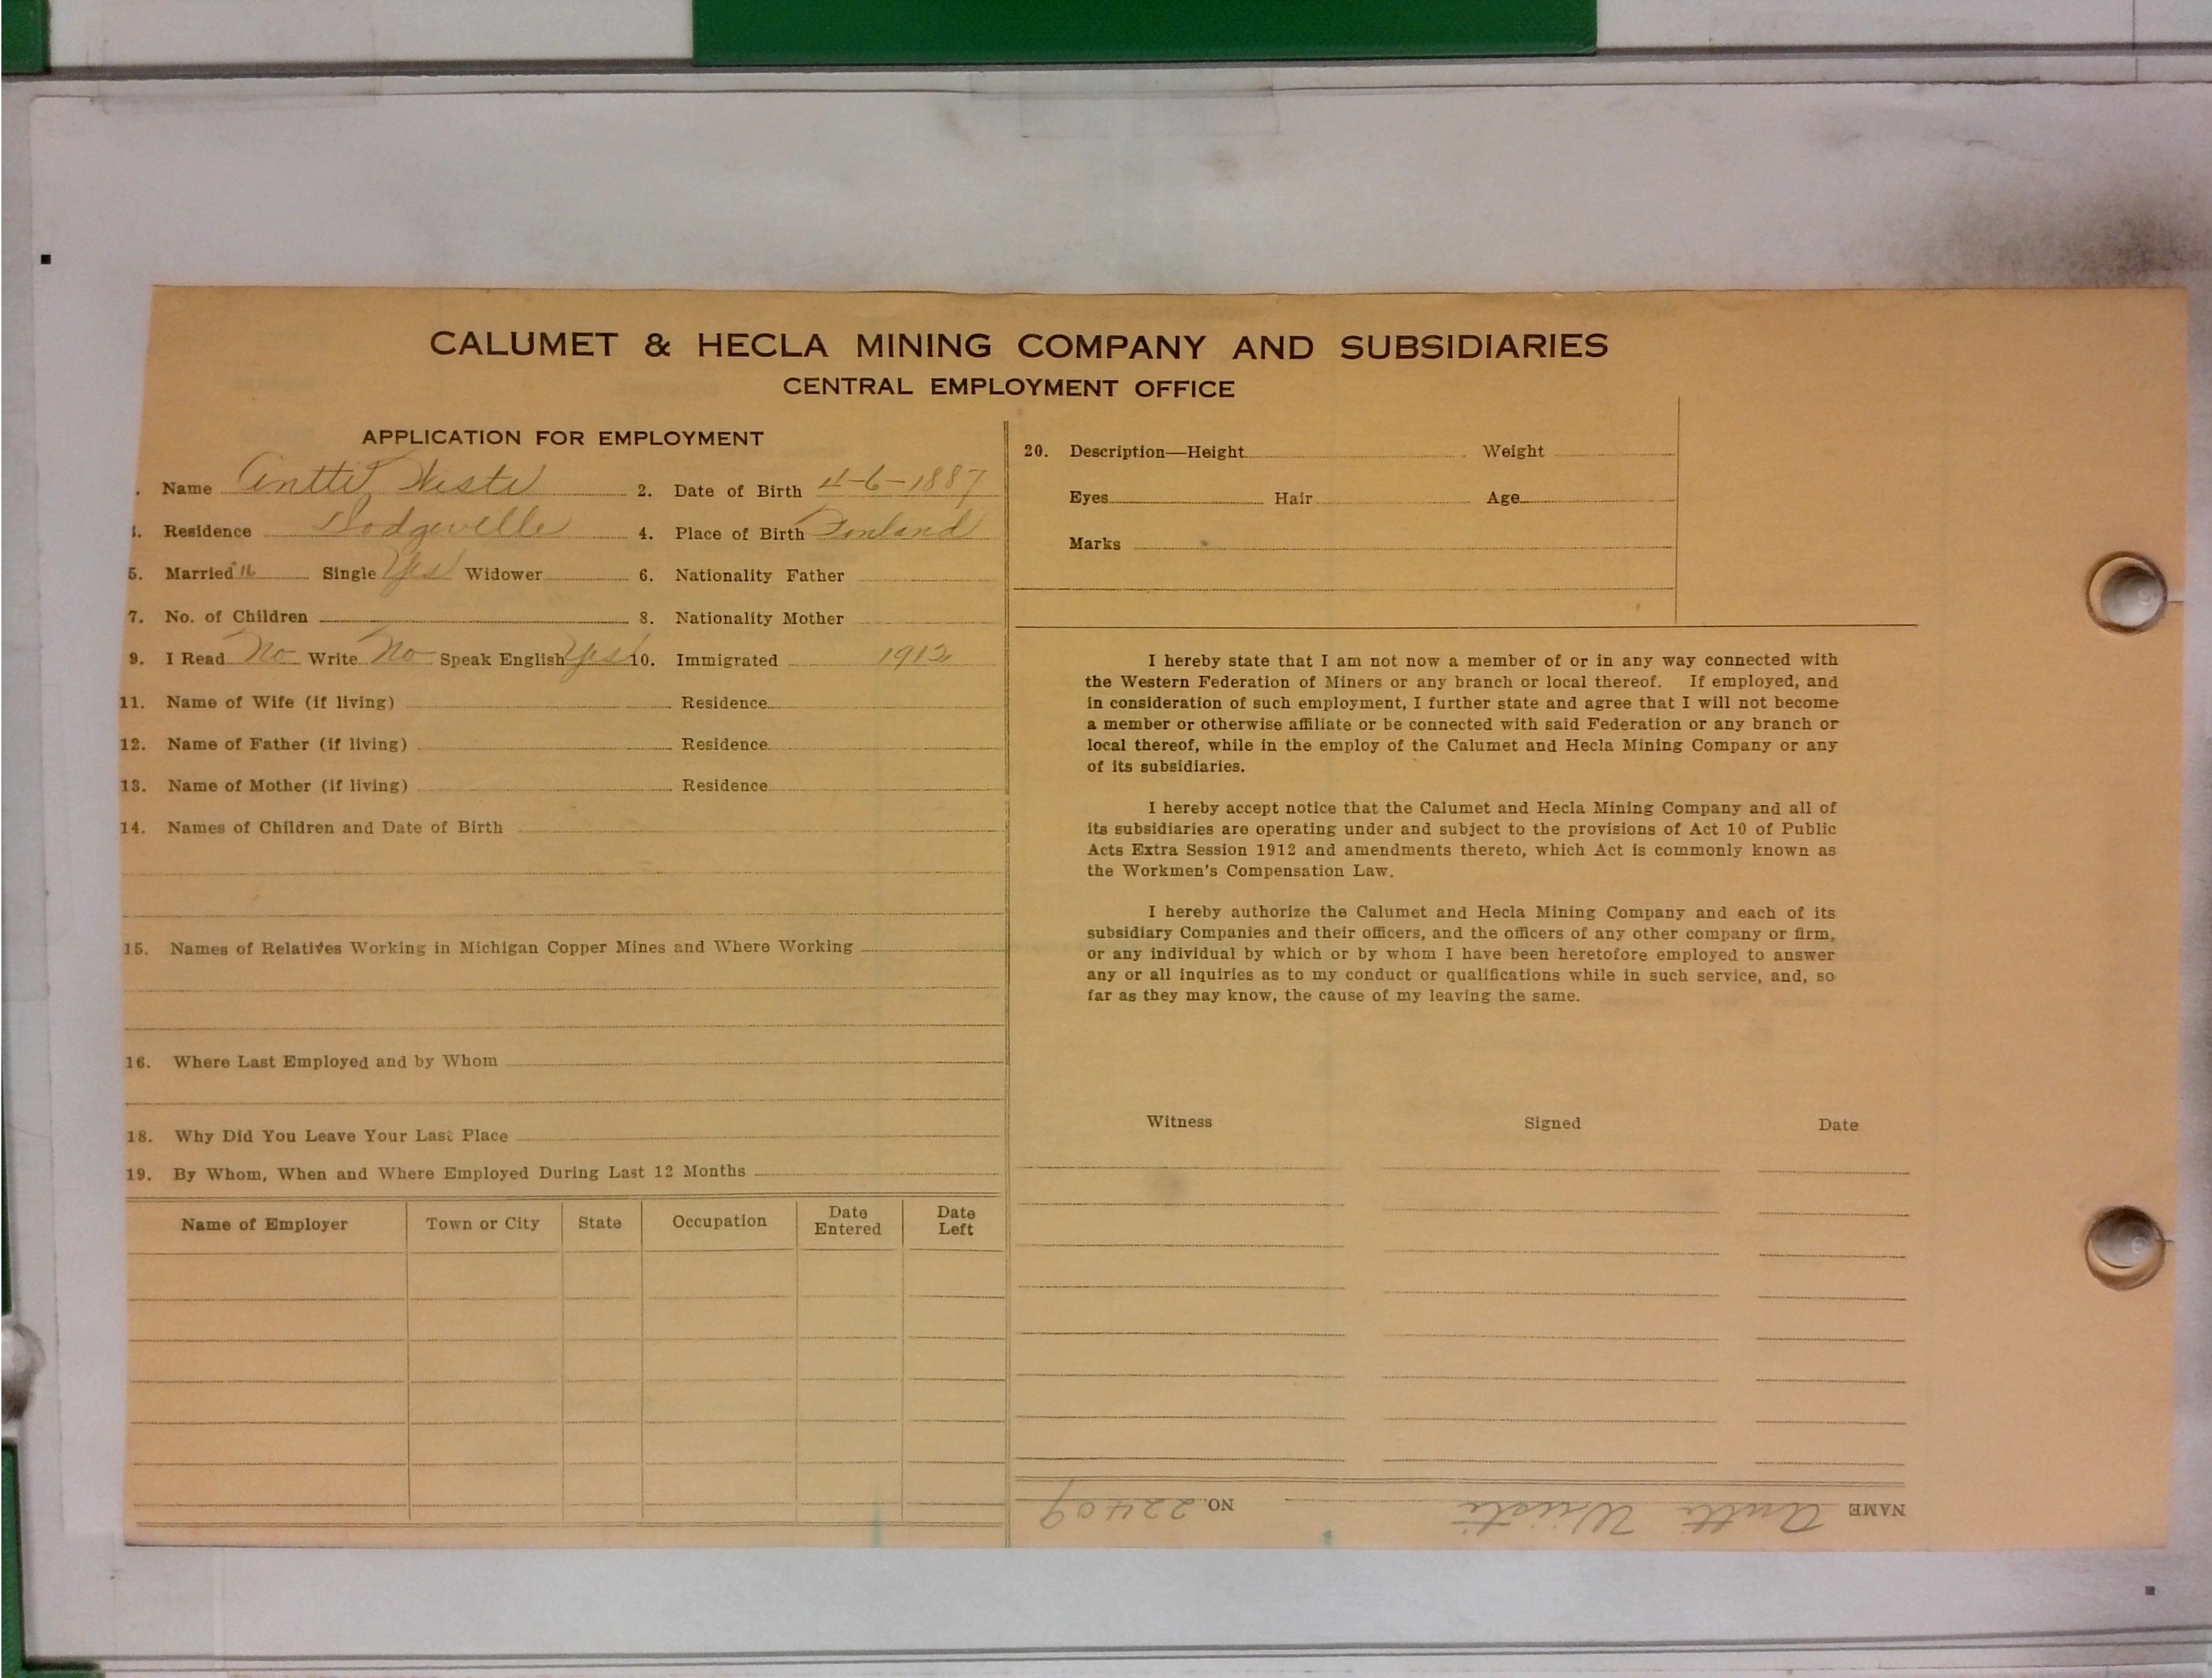 CALUMET & HECLA MINING COMPANY AND SUBSIDIARIES
CENTRAL EMPLOYMENT OFFICE
APPLICATION FOR EMPLOYMENT
. Name Antti 2. Date of Birth 4-6-1887
3. Residence Dodgeville 4. Place of Birth Finland
5. Married Single Yes Widower 6. Nationality Father
7. No. of Children 8. Nationality Mother
9. I Read No Write No Speak English Yes 10. Immigrated 1912
11. Name of Wife (if living) Residence
12. Name of Father (if living) Residence
13. Name of Mother (if living) Residence
14. Names of Children and Date of Birth
15. Names of Relatives Working in Michigan Copper Mines and Where Working
16. Where Last Employed and by Whom
18. Why Did You Leave Your Last Place
19. By Whom, When and Where Employed During Last 12 Months
Name of Employer Town or City State Occupation Date Entered Date Left
20. Description—Height Weight
Eyes Hair Age
Marks
I hereby state that I am not now a member of or in any way connected with
the Western Federation of Miners or any branch or local thereof. If employed, and
in consideration of such employment, I further state and agree that I will not become
a member or otherwise affiliate or be connected with said Federation or any branch or
local thereof, while in the employ of the Calumet and Hecla Mining Company or any
of its subsidiaries.
I hereby accept notice that the Calumet and Hecla Mining Company and all of
its subsidiaries are operating under and subject to the provisions of Act 10 of Public
Acts Extra Session 1912 and amendments thereto, which Act is commonly known as
the Workmen's Compensation Law.
I hereby authorize the Calumet and Hecla Mining Company and each of its
subsidiary Companies and their officers, and the officers of any other company or firm,
or any individual by which or by whom I have been heretofore employed to answer
any or all inquiries as to my conduct or qualifications while in such service, and, so
far as they may know, the cause of my leaving the same.
Witness Signed Date
NAME Antti Wiisti NO. 22409